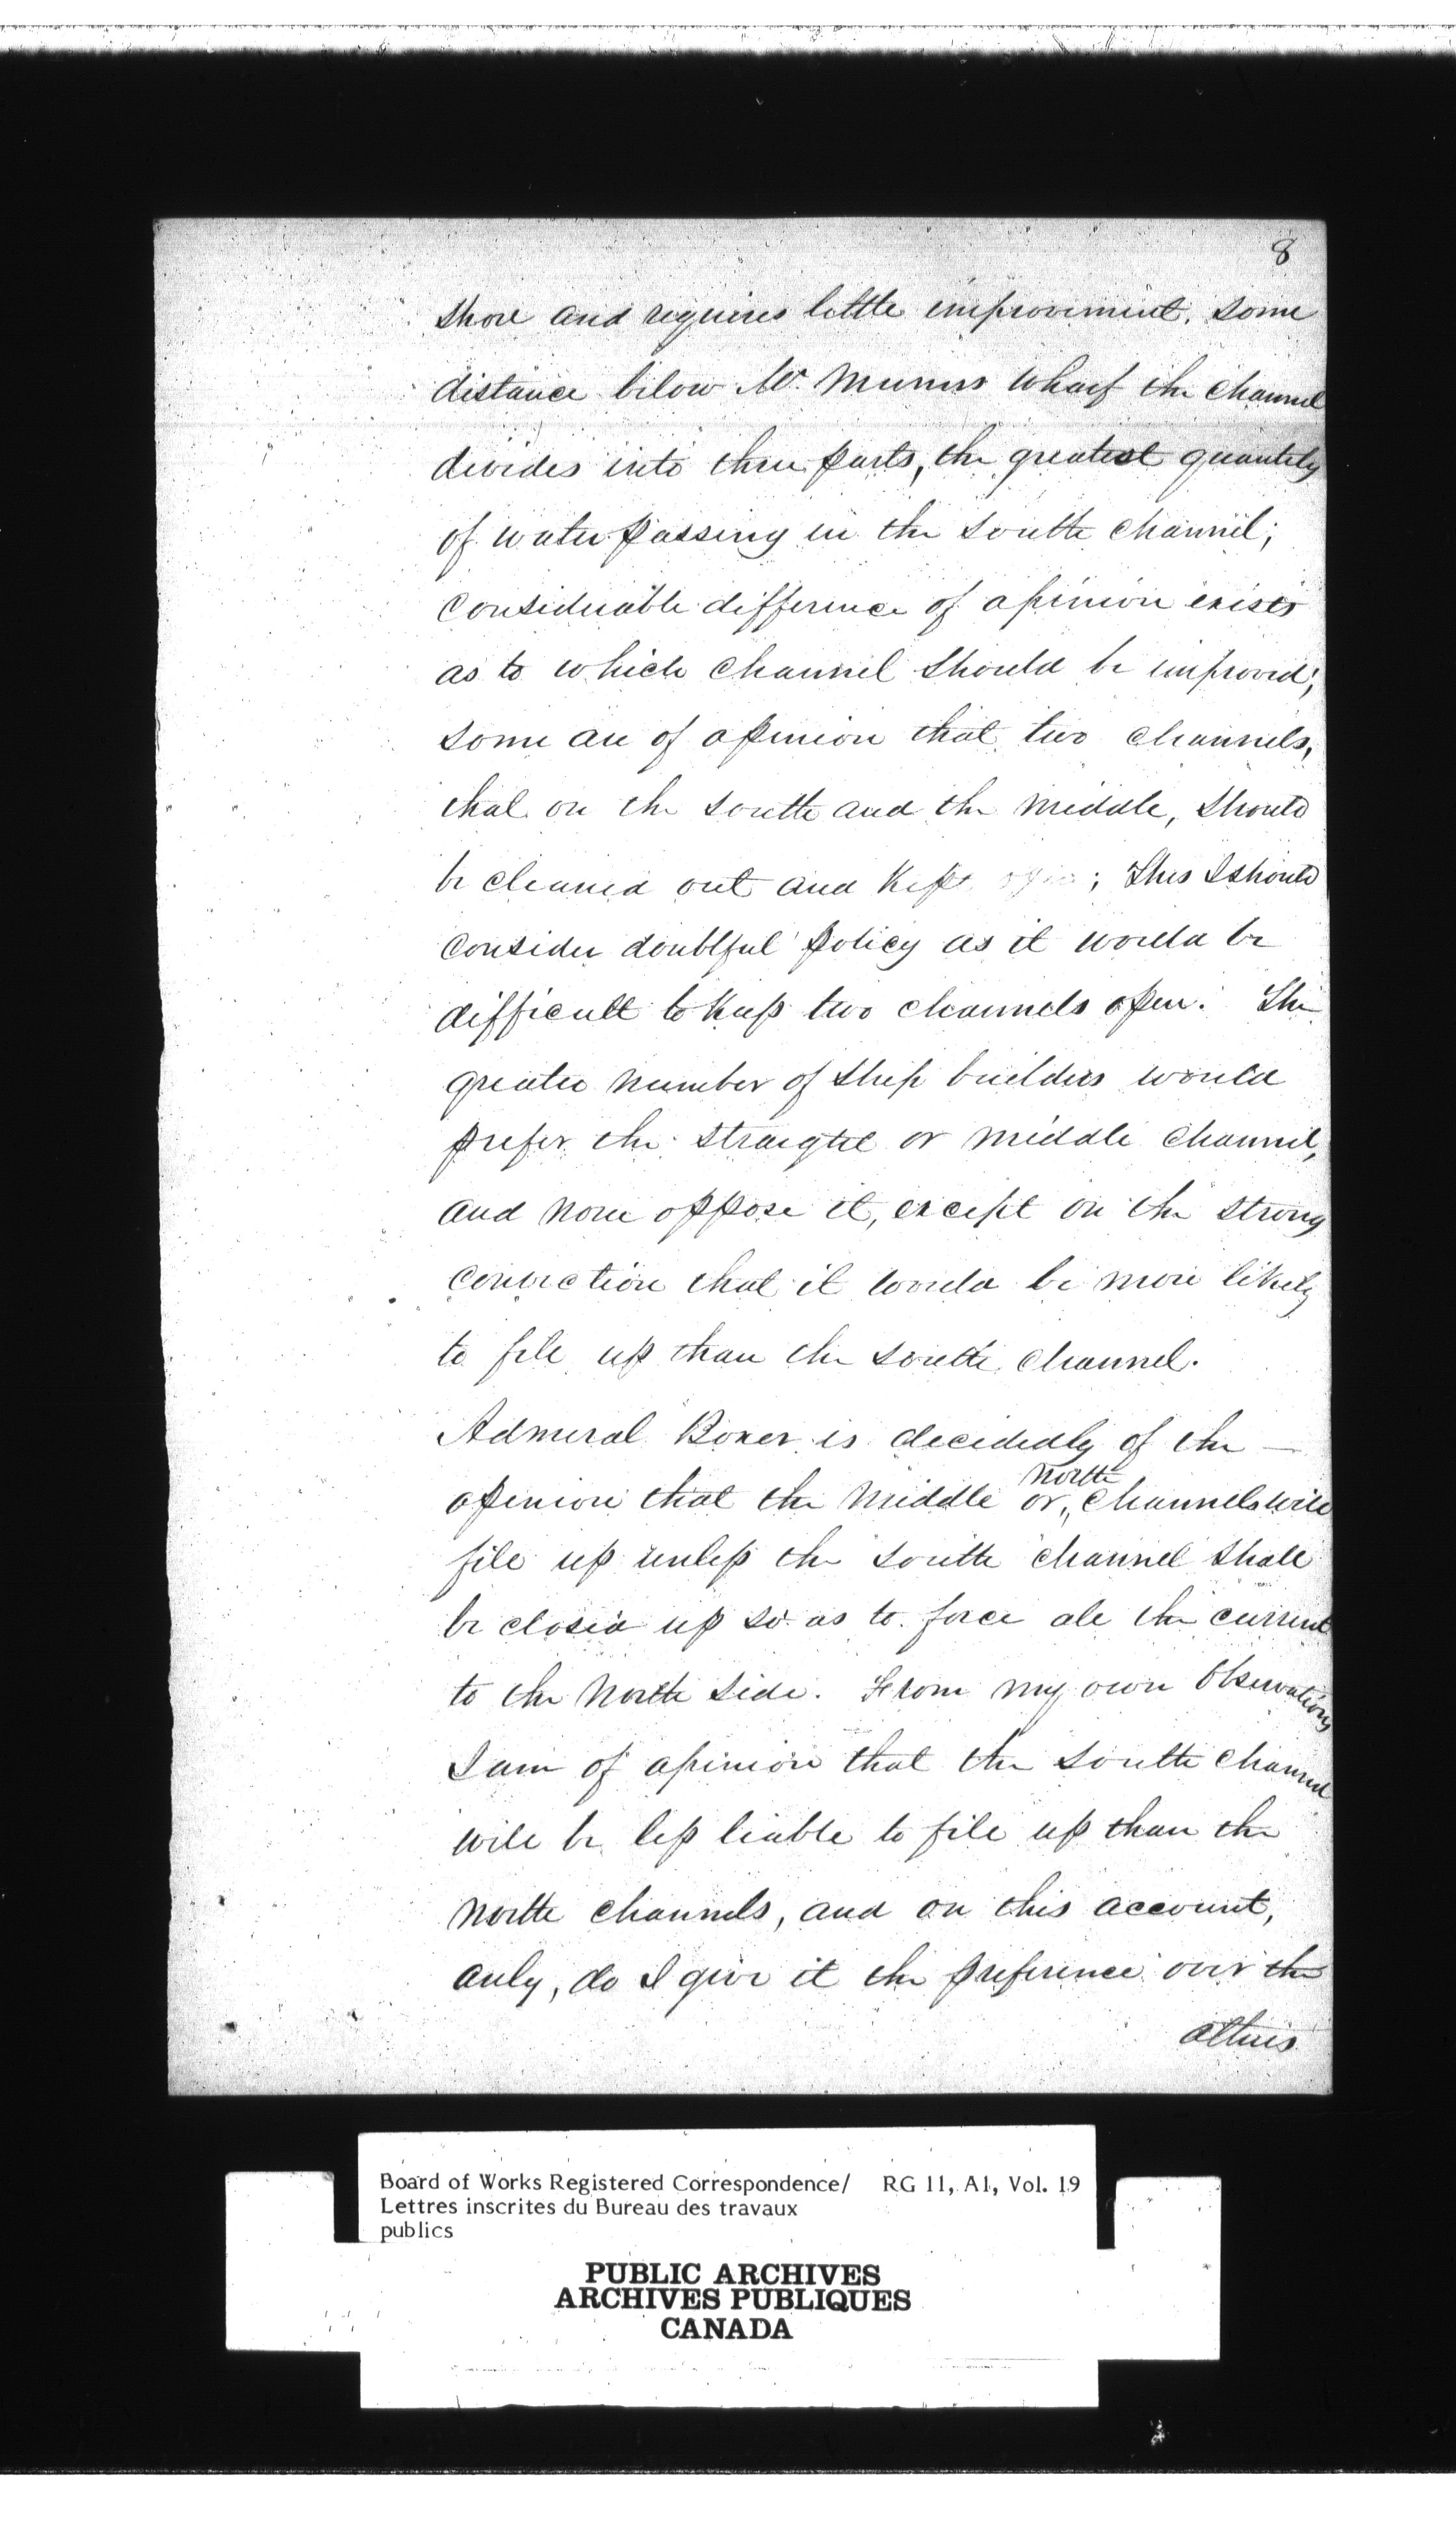 8
shore and requires little improvement. Some
distance below Mr. Munns Wharf the Channel
divides into three parts, the greatest quantity
of water passing in the South Channel;
Considerable difference of opinion exists
as to which Channel should be improved;
some are of opinion that two Channels,
that on the South and the Middle, should
be cleaned out and Kept open; This I should
consider doubtful policy as it would be
difficult to Keep two channels open. The
greater number of Ship builders would
prefer the straight or middle Channel,
and none oppose it, except on the strong
conviction that it would be more likely
to fill up than the South Channel.
Admiral Boxer is decidedly of the —
opinion that the Middle or north Channels will
fill up unless the South Channel shall
be closed up so as to force all the current
to the North side. From my own Observations
I am of opinion that the South Channel
will be less liable to fill up than the
North Channels, and on this account,
only, do I give it the preference over the
others
Board of Works Registered Correspondence/ RG 11, A1, Vol. 19
Lettres inscrites du Bureau des travaux
publics
PUBLIC ARCHIVES
ARCHIVES PUBLIQUES
CANADA